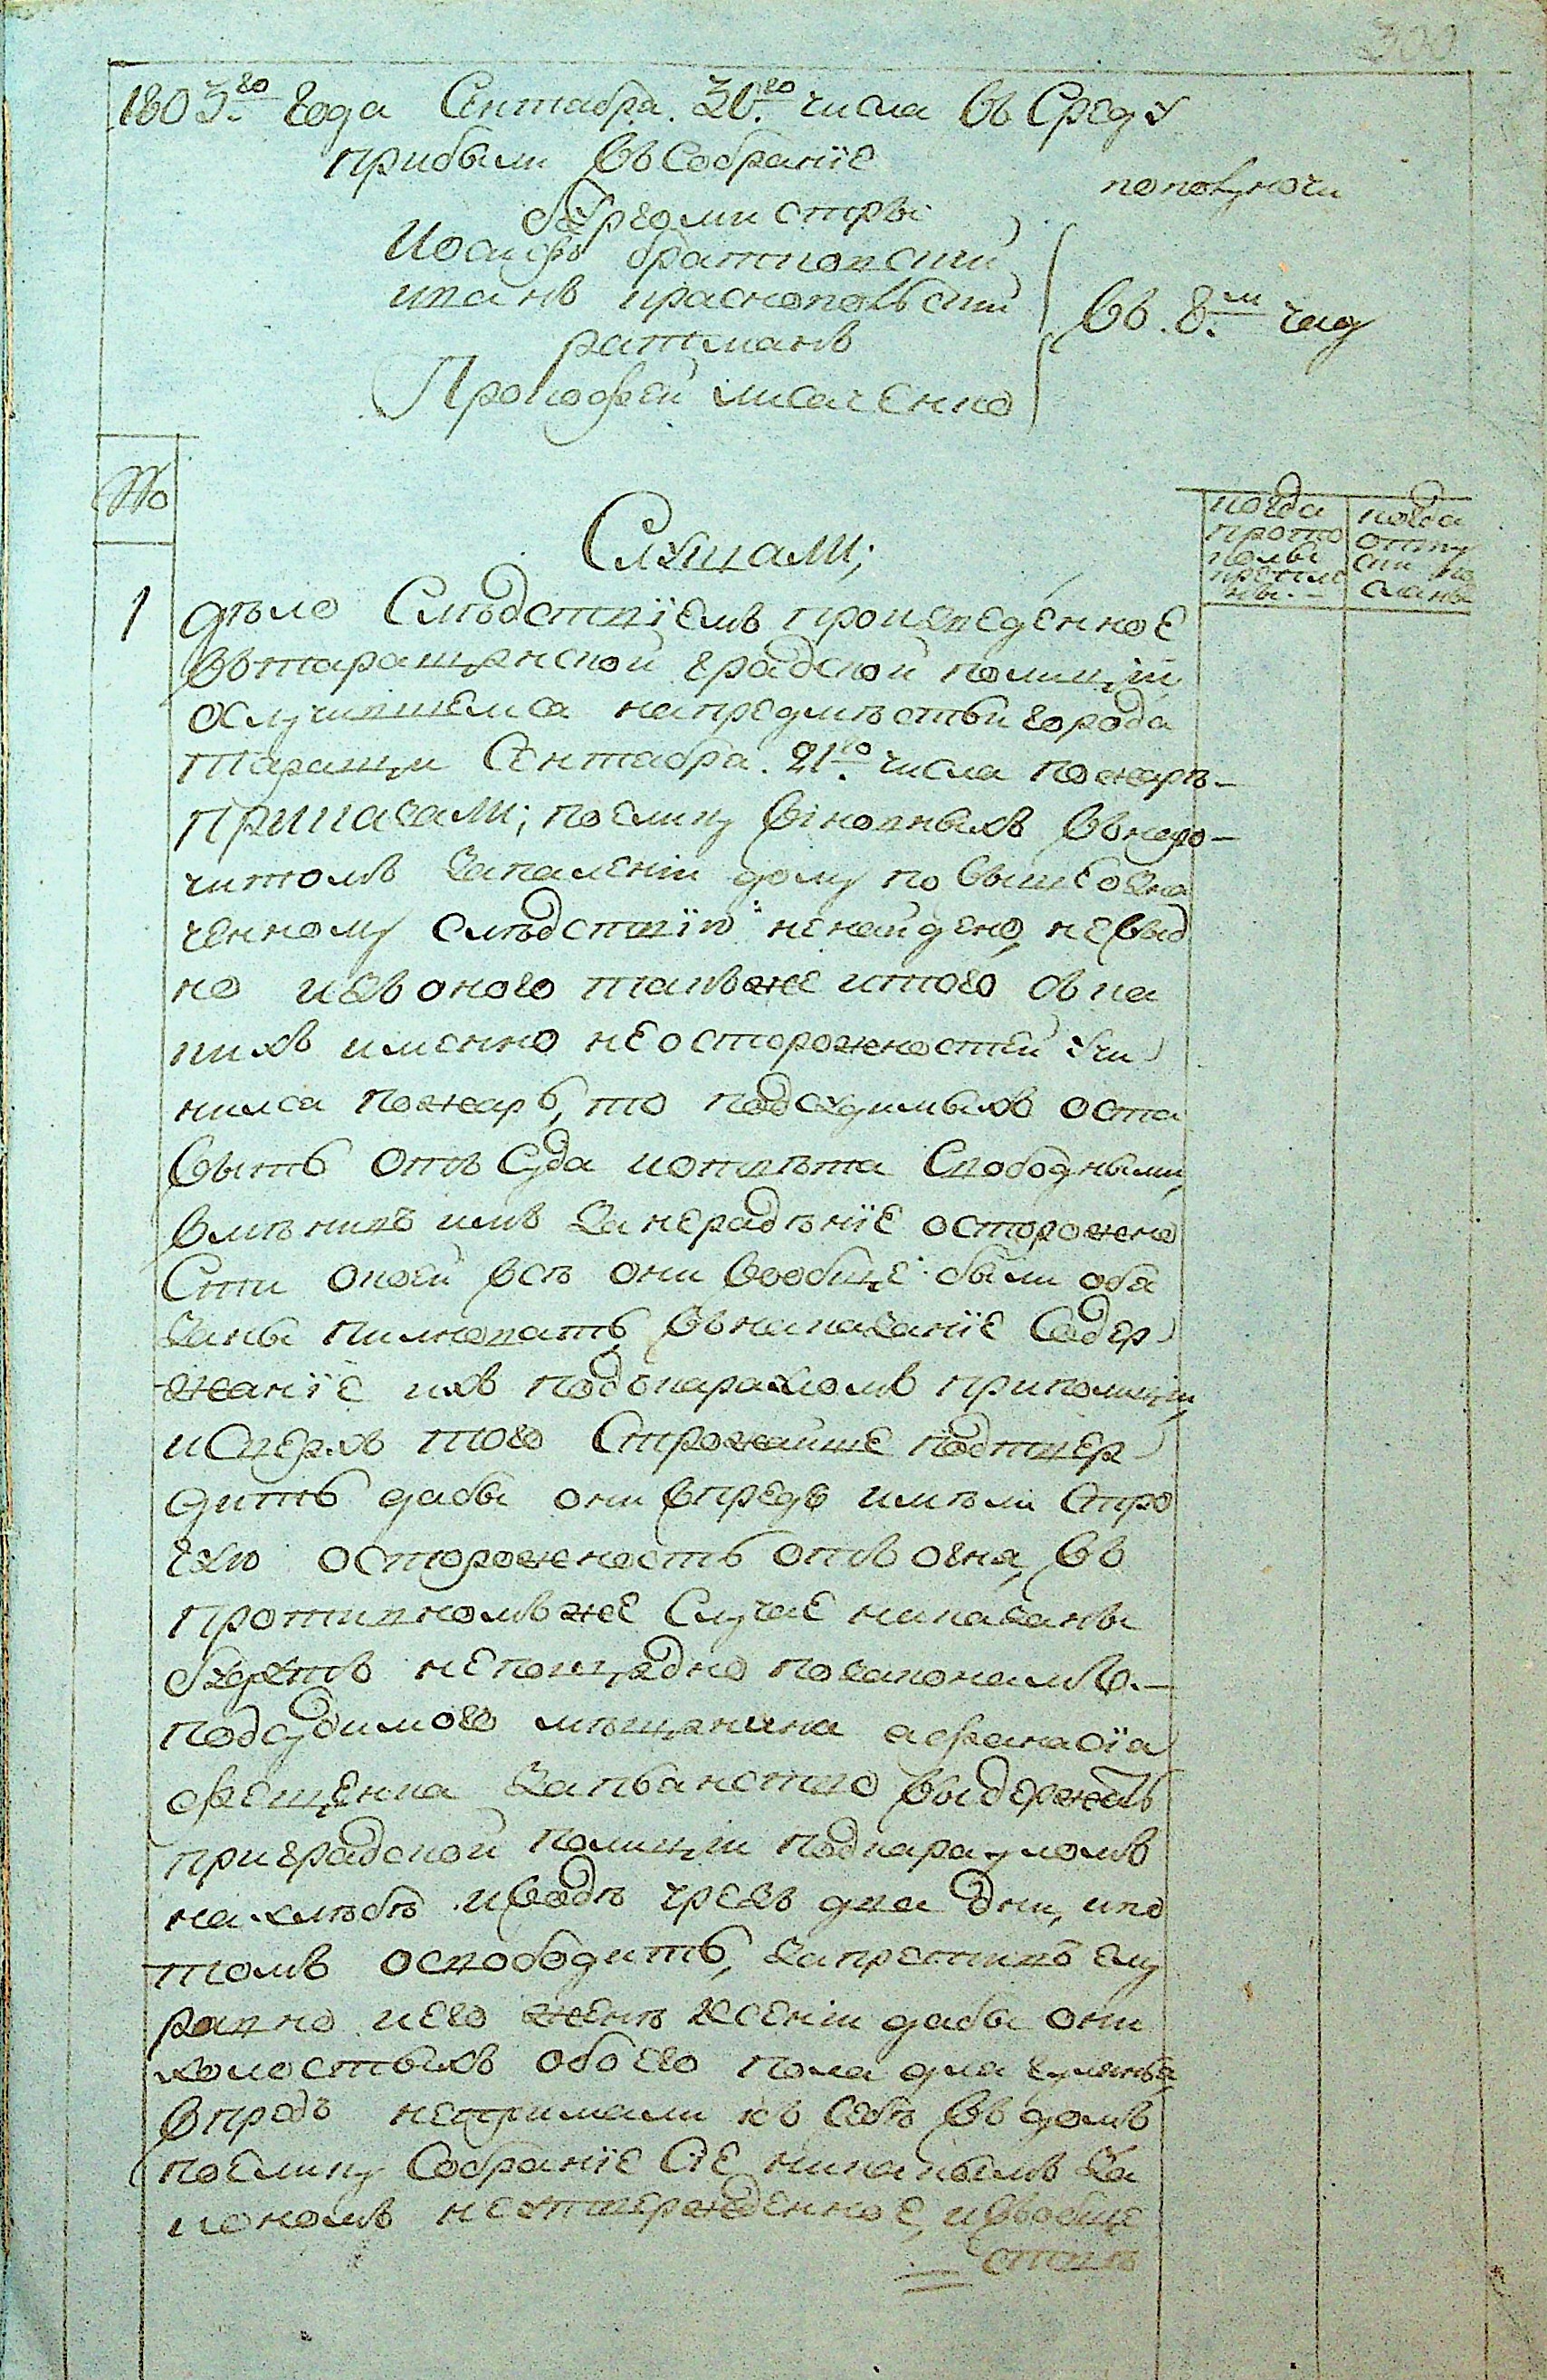 300
1803го года Сентабра. 30го числа въ Среду
прибыли въ Собранїе
бургомистры
пополуночи
Иосифъ братковский
иванъ краснопольский
въ. 8м часу
ратманъ
Прокофей лисаченко
№
когда прото колы крепле ны.
когда отпу ски по сланы
Слушали;
1 дѣло Слѣдствїемъ произведенное
въ таращанской градской полиціи
ослучившемся напредмѣстьи города
таращи Сентабра. 21го числа пожарѣ
Приказали; поелику виновныхъ въ наро-
читомъ запаленіи дому по вышеозна
ченному слѣдствїю ненайдено, невид
но изъ оного такъже иттого съ ка
кихъ именно неосторожностей учи
нился пожаръ, то подсудимыхъ оста
вить отъ Суда иответа Свободными,
вмѣнивъ имъ за нерадѣнїе осторожно
Сти оной всѣ они вообще были обя
заны пилновать, въ наказанїе Содер
жанїе ихъ подъкарауломъ приполиціи,
иСверхъ того Строжайше подтвер
дить дабы они впредъ имѣли Стро
гую осторожность отъ огня, въ
противномъ же Случае наказаны
будутъ непощадно позаконамъ.-
подсудимого мѣщанина афанасїа
фещенка запьанство выдержать
приградской полиціи подкарауломъ
на хлѣбѣ иводѣ чрезъ два дни, ипо
томъ освободить, запретивъ ему
равно иего женѣ ксеніи дабы они
холостыхъ обоего пола для гулянья
впредъ непримали къ Себѣ въ домъ
поелику Собранїе Сїе никакимъ за
кономъ неутвержденное, ивообще
ствѣ